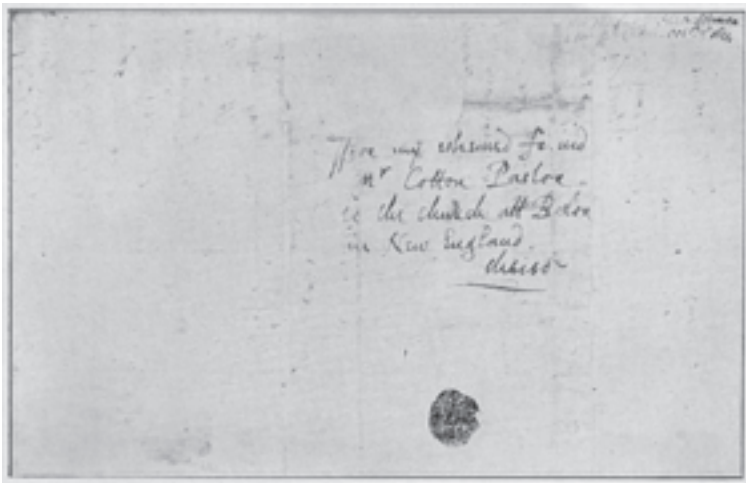 ffor my esteemed frend
Mr Cotton Pastor
to the church att Boston
in New England.
these